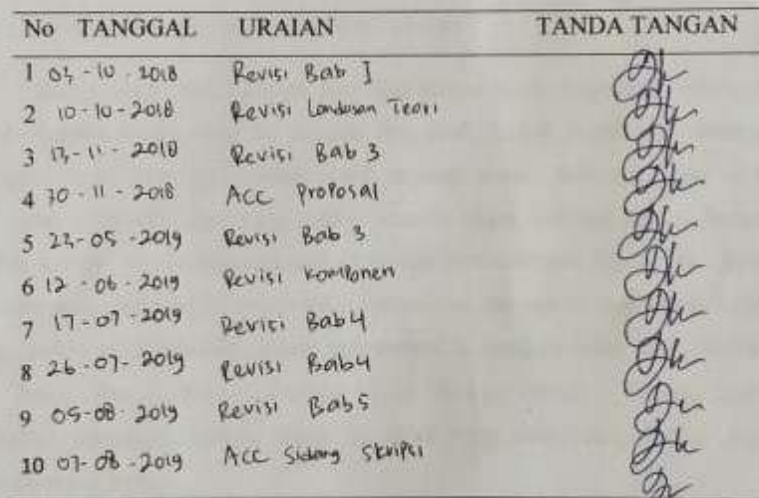 No TANGGAL URAIAN TANDA TANGAN
1 03-10-2018 Revisi Bab I
2 10-10-2018 Revisi Landasan Teori
3 13-11-2018 Revisi Bab 3
4 30-11-2018 ACC Proposal
5 23-05-2019 Revisi Bab 3
6 12-06-2019 Revisi Komponen
7 17-07-2019 Revisi Bab 4
8 26-07-2019 Revisi Bab 4
9 05-08-2019 Revisi Bab 5
10 07-08-2019 ACC Sidang Skripsi